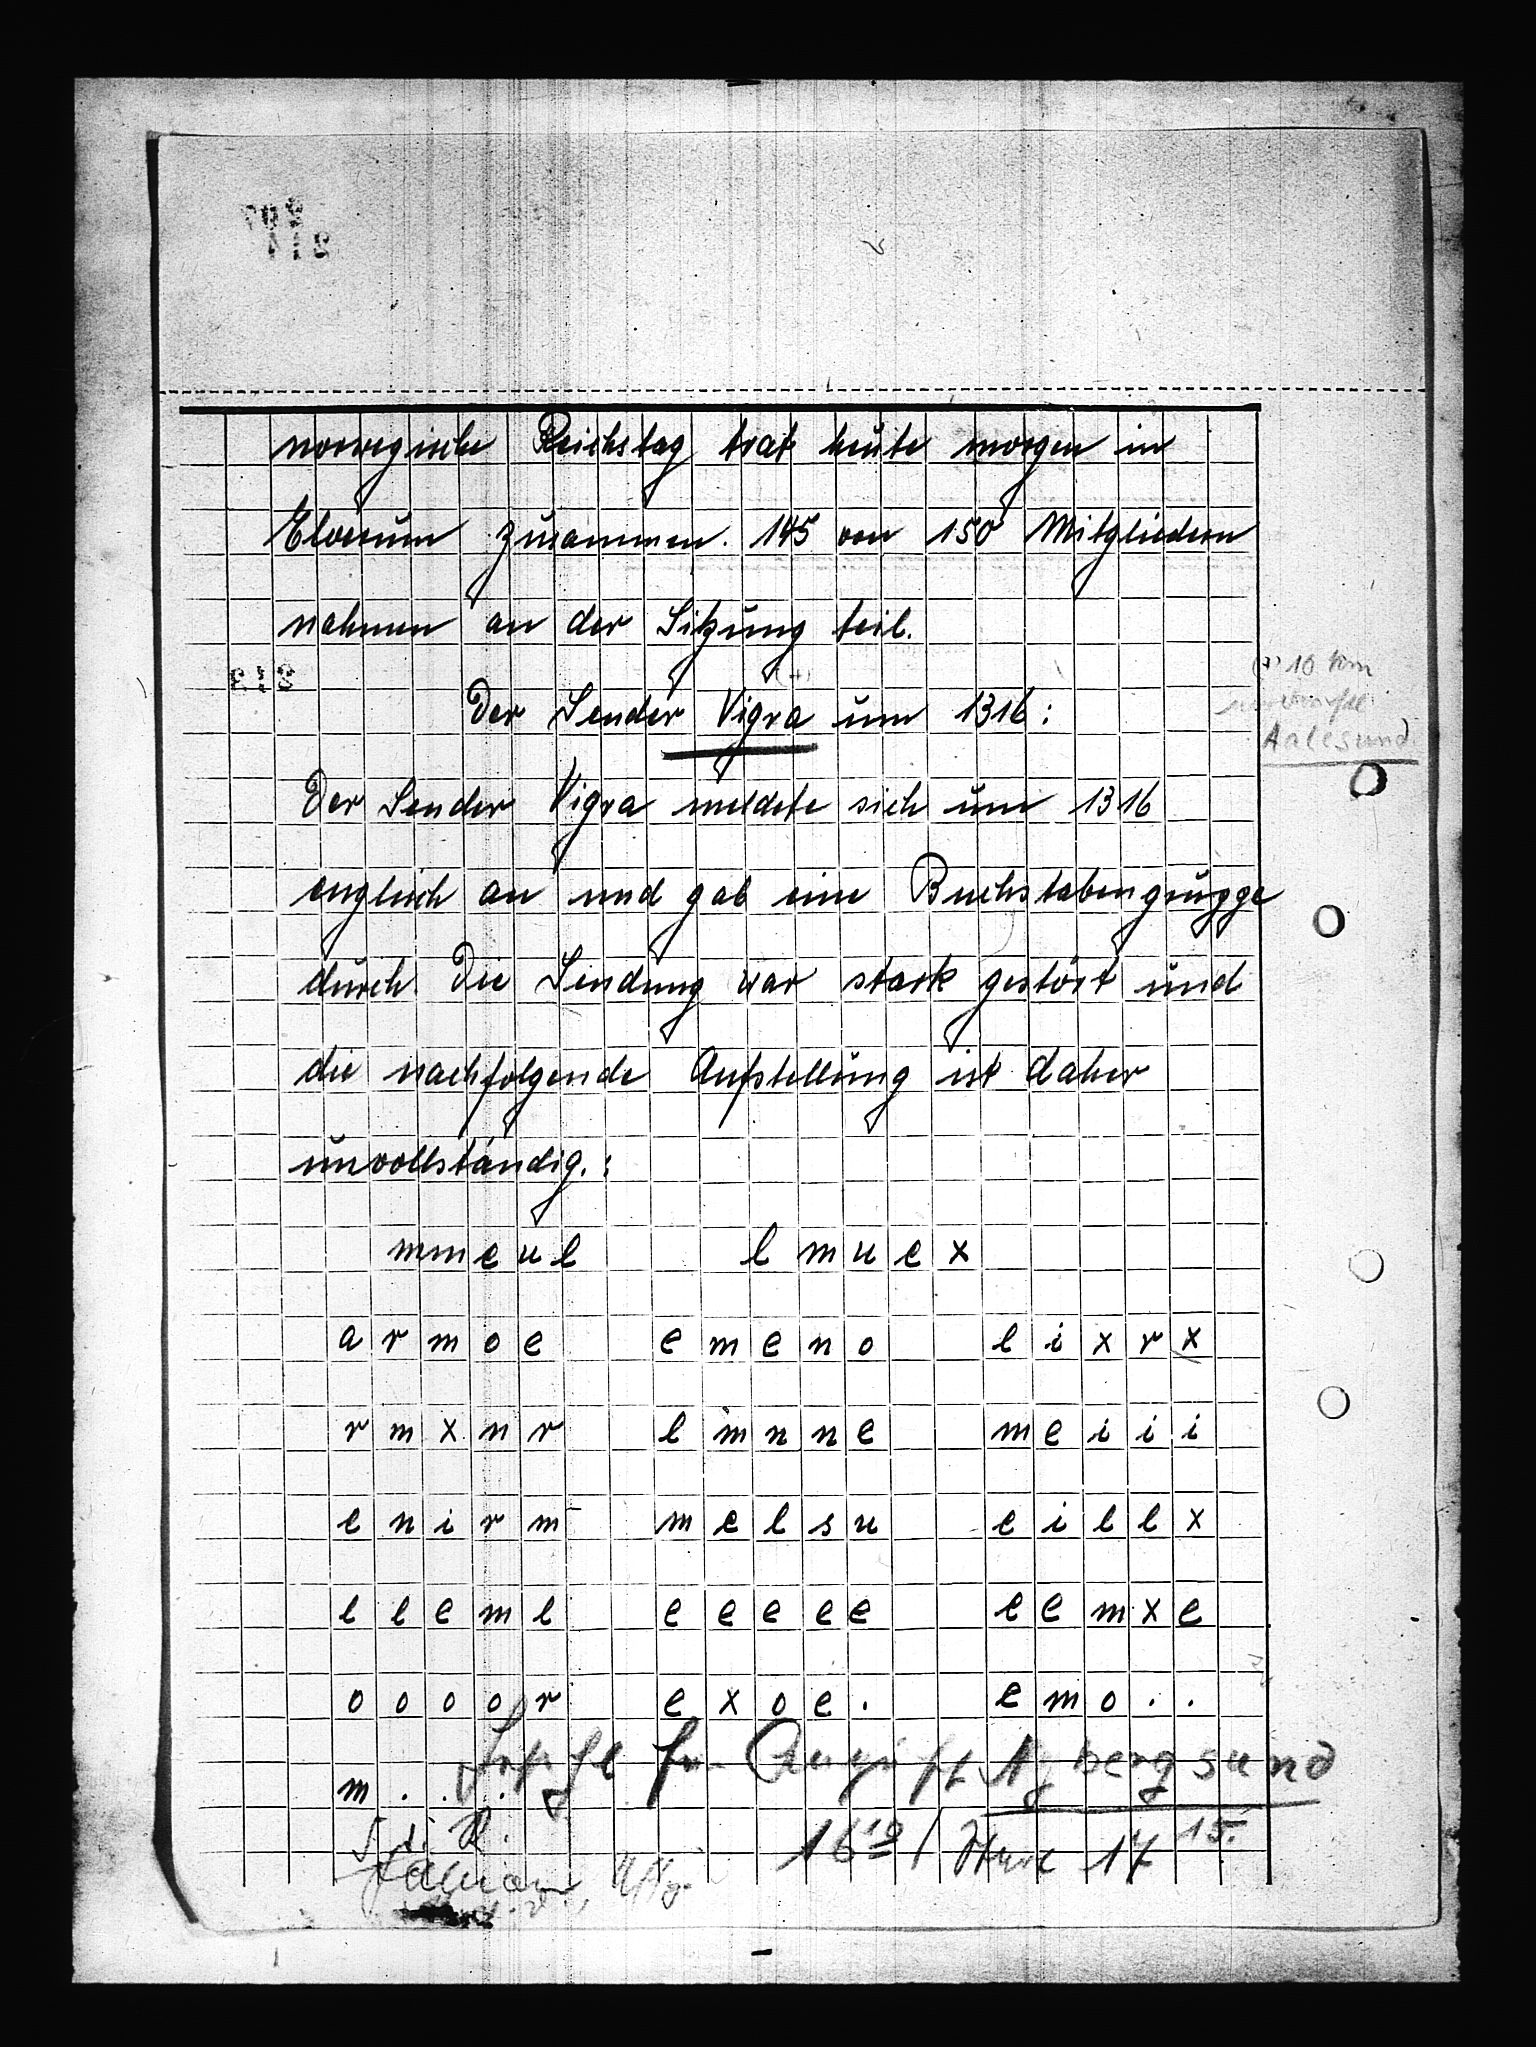 norwegische Reichstag trat heute morgen in
Elverum zusammen. 145 von 150 Mitgliedern
nahmen an der Sitzung teil.
(+)
Der Sender Vigra um 1316:
(+) 10 km
Aalesund.
Der Sender Vigra meldete sich um 1316
englisch an und gab eine Buchstabengruppe
durch. Die Sendung war stark gestört und
die nachfolgende Aufstellung ist daher
unvollständig.:
mmeul lmuex
armoe emeno lixrx
rmxnr lmnne meiii
enirm melsu eillx
lleml eeeee eemxe
oooor exoe. emo..
m....
Angriff Nybergsund
S.d.R.
16 10 / 17 15.